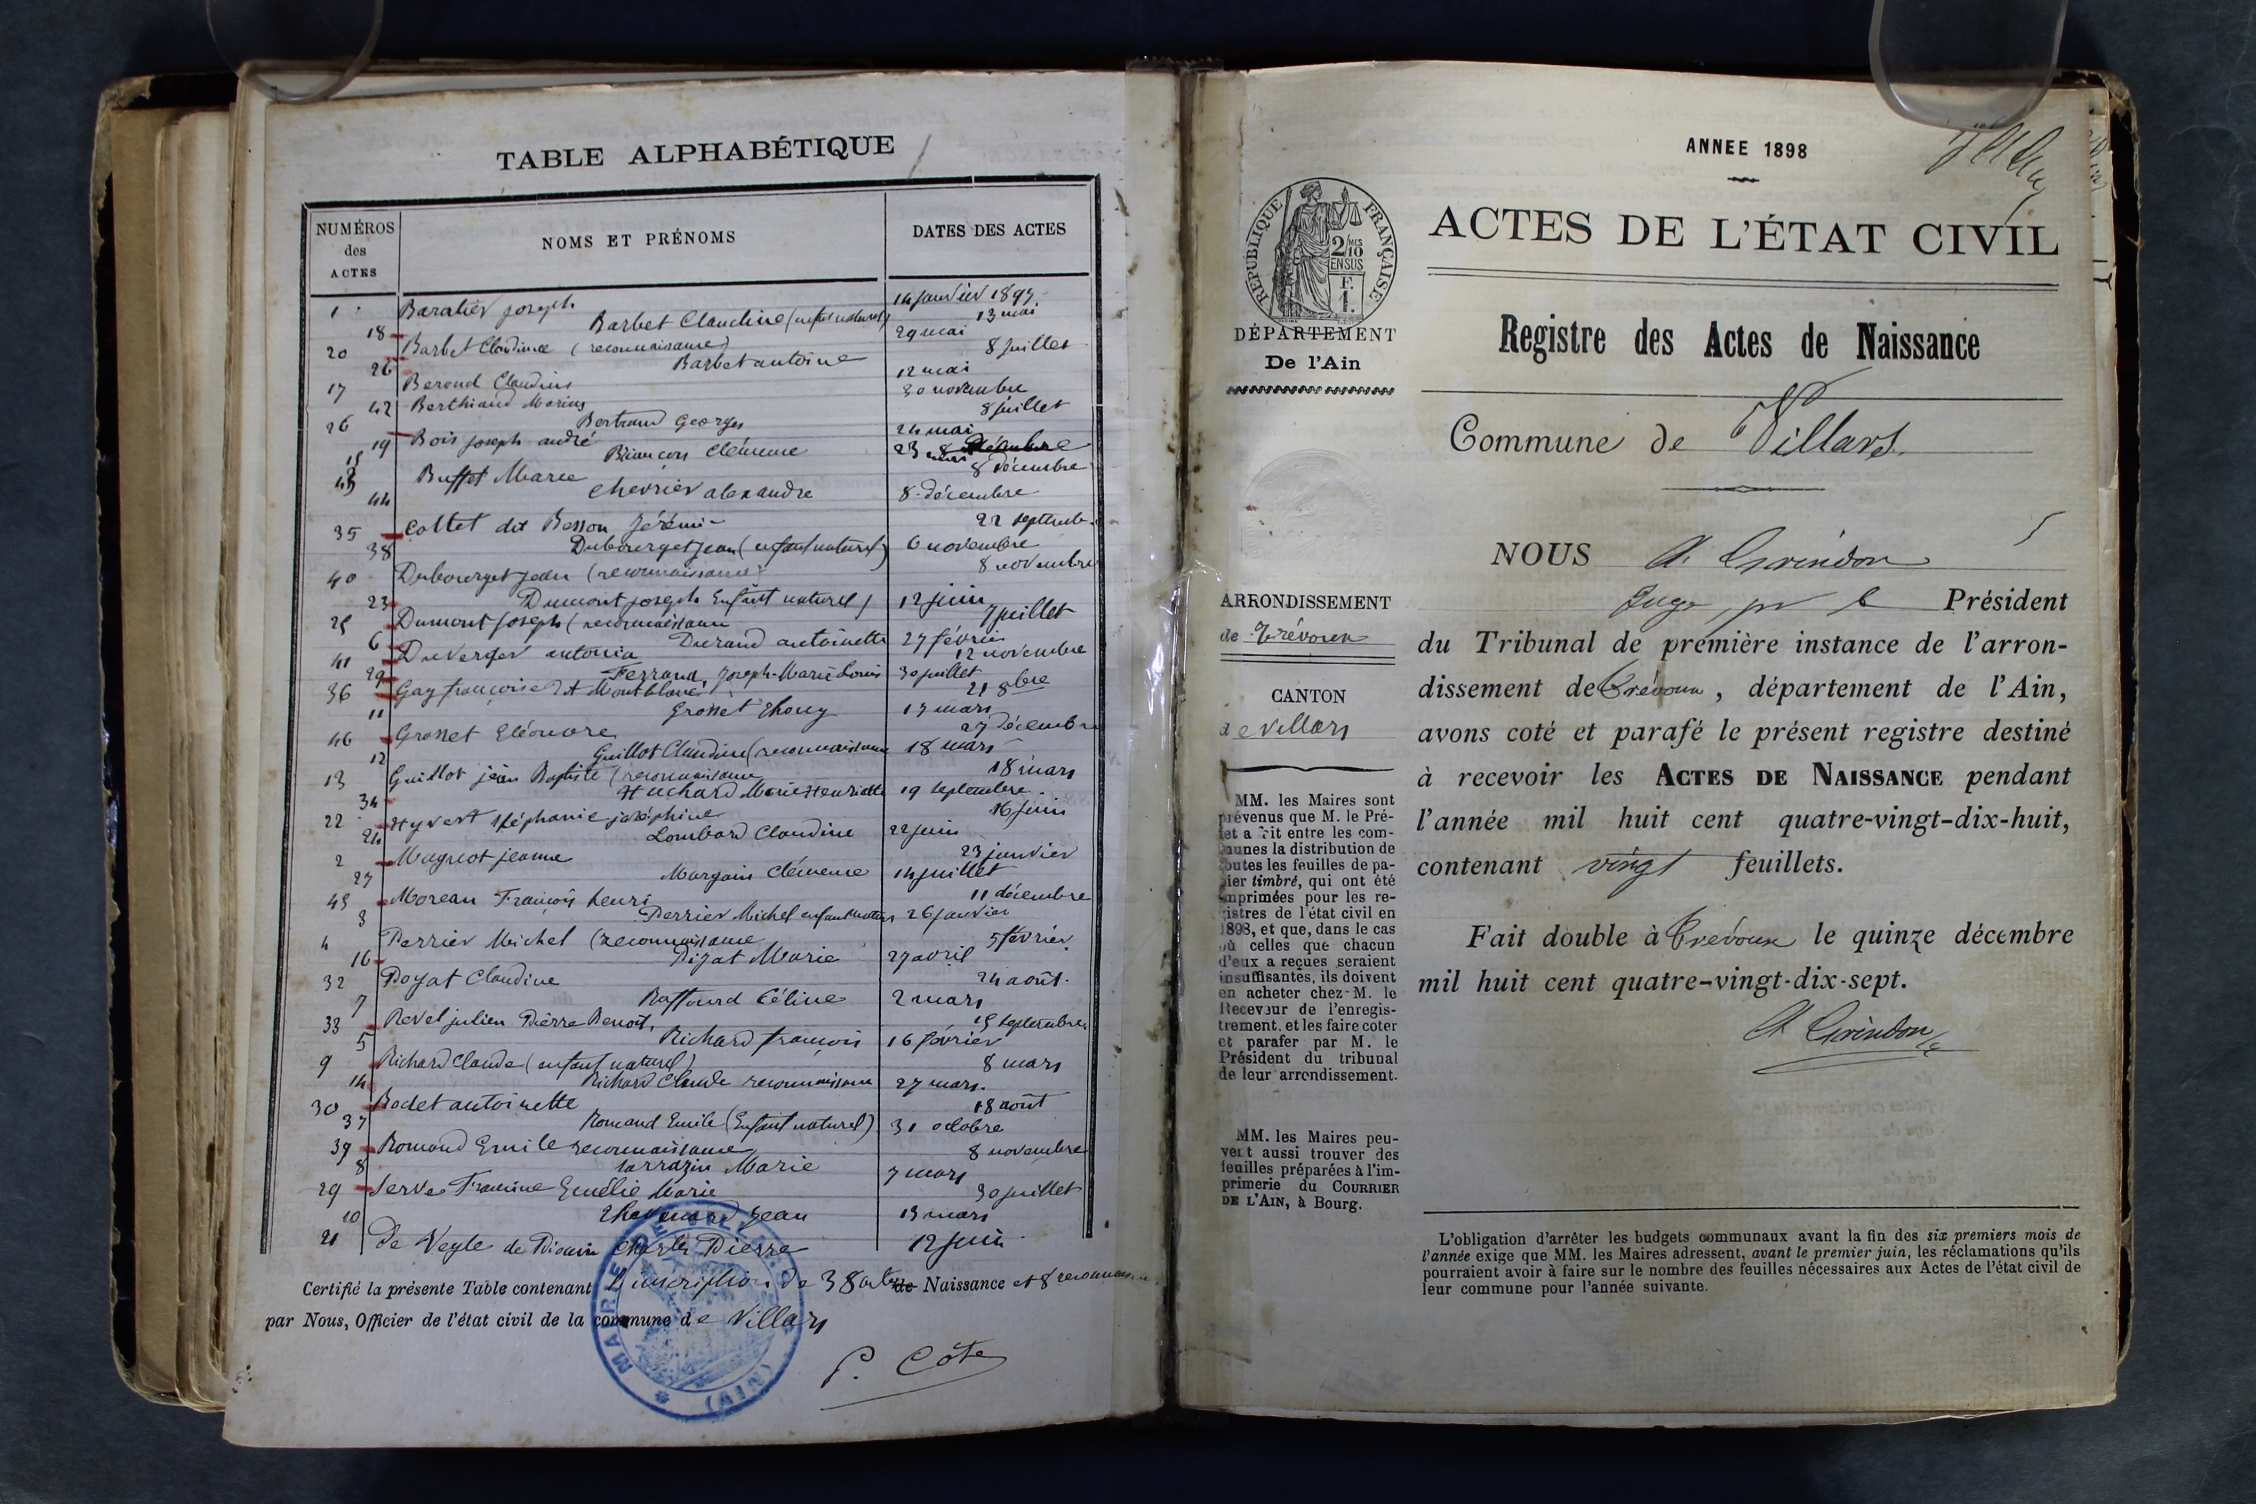 TABLE ALPHABÉTIQUE
NUMÉROS des ACTES
NOMS ET PRÉNOMS
DATES DES ACTES
1 Baratier joseph 14 janvier 1897
18 Barbet Claudine (enfant naturel) 13 mai
20 Barbet Claudine (reconnaissance) 29 mai
26 Barbet antoine 8 juillet
17 Beroud Claudius 12 mai
42 Berthiaud Marius 30 novembre
26 Bertrand Georges 8 juillet
19 Bois joseph andré 24 mai
15 Briançon Clémence 23
43 Buffet Marie 8 décembre
44 Chevrier alexandre 8 décembre
35 Collet dit Besson Jérémi 22 septembre
38 Dubourget Jean (enfant naturel) 6 novembre
40 Dubourget Jean (reconnaissance) 8 novembre
23 Dumont joseph Enfant naturel) 12 juin
25 Dumont joseph (reconnaissance 7 juillet
6 Durand antoinette 27 février
41 Duverger antonia 12 novembre
29 Ferrand, Joseph-Marie Louis 30 juillet
36 Gay françoise dit Montblanc 21 8bre
11 Grosset Thony 17 mars
46 Grosset Eléonore 27 Décembre
12 Guillot Claudine (reconnaissance 18 mars
13 Guillot jean Baptiste (reconnaissance 18 mars
34 Huchard Marie Henriette 19 septembre
22 Hyvert Stéphanie joséphine 16 juin
24 Lombard Claudine 22 juin
2 Magnot jeanne 23 janvier
27 Margain Clémence 14 juillet
45 Moreau François henri 11 décembre
3 Perrier Michel enfant naturel 26 janvier
4 Perrier Michel (reconnaissance 5 février
16 Pizat Marie 27 avril
32 Poyat Claudine 24 août
7 Raffourd Céline 2 mars
33 Revel julien Pierre Benoit, 15 septembre
5 Richard françois 16 février
9 Richard Claude (enfant naturel) 8 mars
14 Richard Claude reconnaissance 27 mars
30 Rodet antoinette 18 août
37 Romand Emile (Enfant naturel) 31 octobre
39 Romand Emile reconnaissance 8 novembre
8 Sarrazin Marie 7 mars
29 Serve Francine Emélie Marie 30 juillet
10 Thevenard Jean 13 mars
21 De Veyle de Charles Pierre 12 juin
Certifié la présente Table contenant L'inscription de 38 actes de Naissance et 8 reconnaissances
par Nous, Officier de l'état civil de la commune de Villars
P. Côte
MAIRIE DE VILLARS (AIN)
ANNEE 1898
RÉPUBLIQUE FRANÇAISE
2/10 MES
EN SUS
F. 1.
ACTES DE L'ÉTAT CIVIL
DÉPARTEMENT
De l'Ain
Registre des Actes de Naissance
Commune de Villars
ARRONDISSEMENT
de Trévoux
CANTON
de Villars
MM. les Maires sont
prévenus que M. le Pré-
fet a fait entre les com-
munes la distribution de
toutes les feuilles de pa-
pier timbré, qui ont été
imprimées pour les re-
gistres de l'état civil en
1898, et que, dans le cas
où celles que chacun
d'eux a reçues seraient
insuffisantes, ils doivent
en acheter chez M. le
Receveur de l'enregis-
trement, et les faire coter
et parafer par M. le
Président du tribunal
de leur arrondissement.
MM. les Maires peu-
vent aussi trouver des
feuilles préparées à l'im-
primerie du COURRIER
DE L'AIN, à Bourg.
NOUS A. Grindon
Juge pr le Président
du Tribunal de première instance de l'arron-
dissement de Trévoux, département de l'Ain,
avons coté et parafé le présent registre destiné
à recevoir les ACTES DE NAISSANCE pendant
l'année mil huit cent quatre-vingt-dix-huit,
contenant vingt feuillets.
Fait double à Trévoux le quinze décembre
mil huit cent quatre-vingt-dix-sept.
A. Grindon
L'obligation d'arrêter les budgets communaux avant la fin des six premiers mois de
l'année exige que MM. les Maires adressent, avant le premier juin, les réclamations qu'ils
pourraient avoir à faire sur le nombre des feuilles nécessaires aux Actes de l'état civil de
leur commune pour l'année suivante.